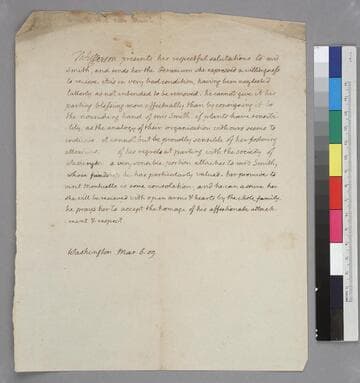 Th: Jefferson presents his respectful salutations to mrs
Smith, and sends her the Geranium she expressed a willingness
to receive. it is in very bad condition, having been neglected
latterly, as not intended to be removed. he cannot give it his
parting blessing more effectually than by consigning it to
the nourishing hand of mrs Smith. if plants have sensibi-
lity, as the analogy of their organisation with ours seems to
indicate, it cannot but be proudly sensible of her fostering
attentions. of his regrets at parting with the society of
Washington, a very sensible portion attaches to mrs Smith,
whose friendship he has particularly valued. her promise to
visit Monticello is some consolation, and he can assure her
she will be received with open arms & hearts by the whole family.
he prays her to accept the homage of his affectionate attach-
ment & respect.
Washington Mar. 6. 09.